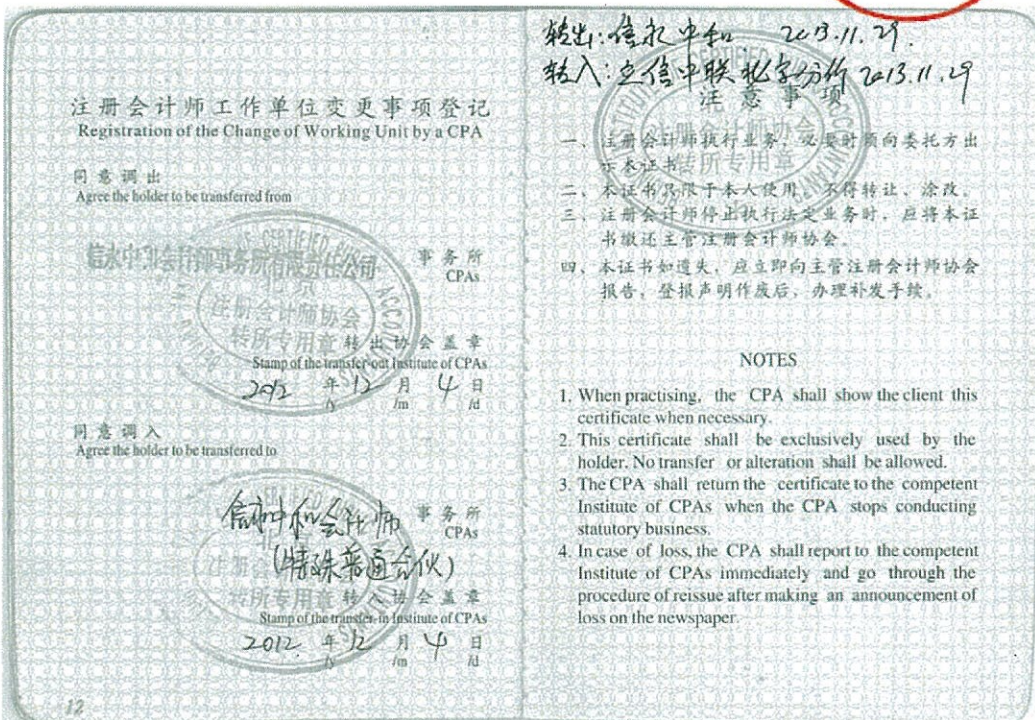 注册会计师工作单位变更事项登记
Registration of the Change of Working Unit by a CPA
同意调出
Agree the holder to be transferred from
信永中和会计师事务所有限责任公司
事务所
CPAs
北京
注册会计师协会
转所专用章
转出协会盖章
Stamp of the transfer-out Institute of CPAs
2012 年 12 月 4 日
/y /m /d
同意调入
Agree the holder to be transferred to
信永中和会计师
事务所
CPAs
(特殊普通合伙)
转所专用章
转入协会盖章
Stamp of the transfer-in Institute of CPAs
2012 年 12 月 4 日
/y /m /d
12
转出:信永中和 2013.11.29.
转入:立信中联 分所 2013.11.29
注意事项
注册会计师协会
转所专用章
一、注册会计师执行业务，必要时须向委托方出
示本证书。
二、本证书只限于本人使用，不得转让、涂改。
三、注册会计师停止执行法定业务时，应将本证
书缴还主管注册会计师协会。
四、本证书如遗失，应立即向主管注册会计师协会
报告，登报声明作废后，办理补发手续。
NOTES
1. When practising, the CPA shall show the client this
certificate when necessary.
2. This certificate shall be exclusively used by the
holder. No transfer or alteration shall be allowed.
3. The CPA shall return the certificate to the competent
Institute of CPAs when the CPA stops conducting
statutory business.
4. In case of loss, the CPA shall report to the competent
Institute of CPAs immediately and go through the
procedure of reissue after making an announcement of
loss on the newspaper.